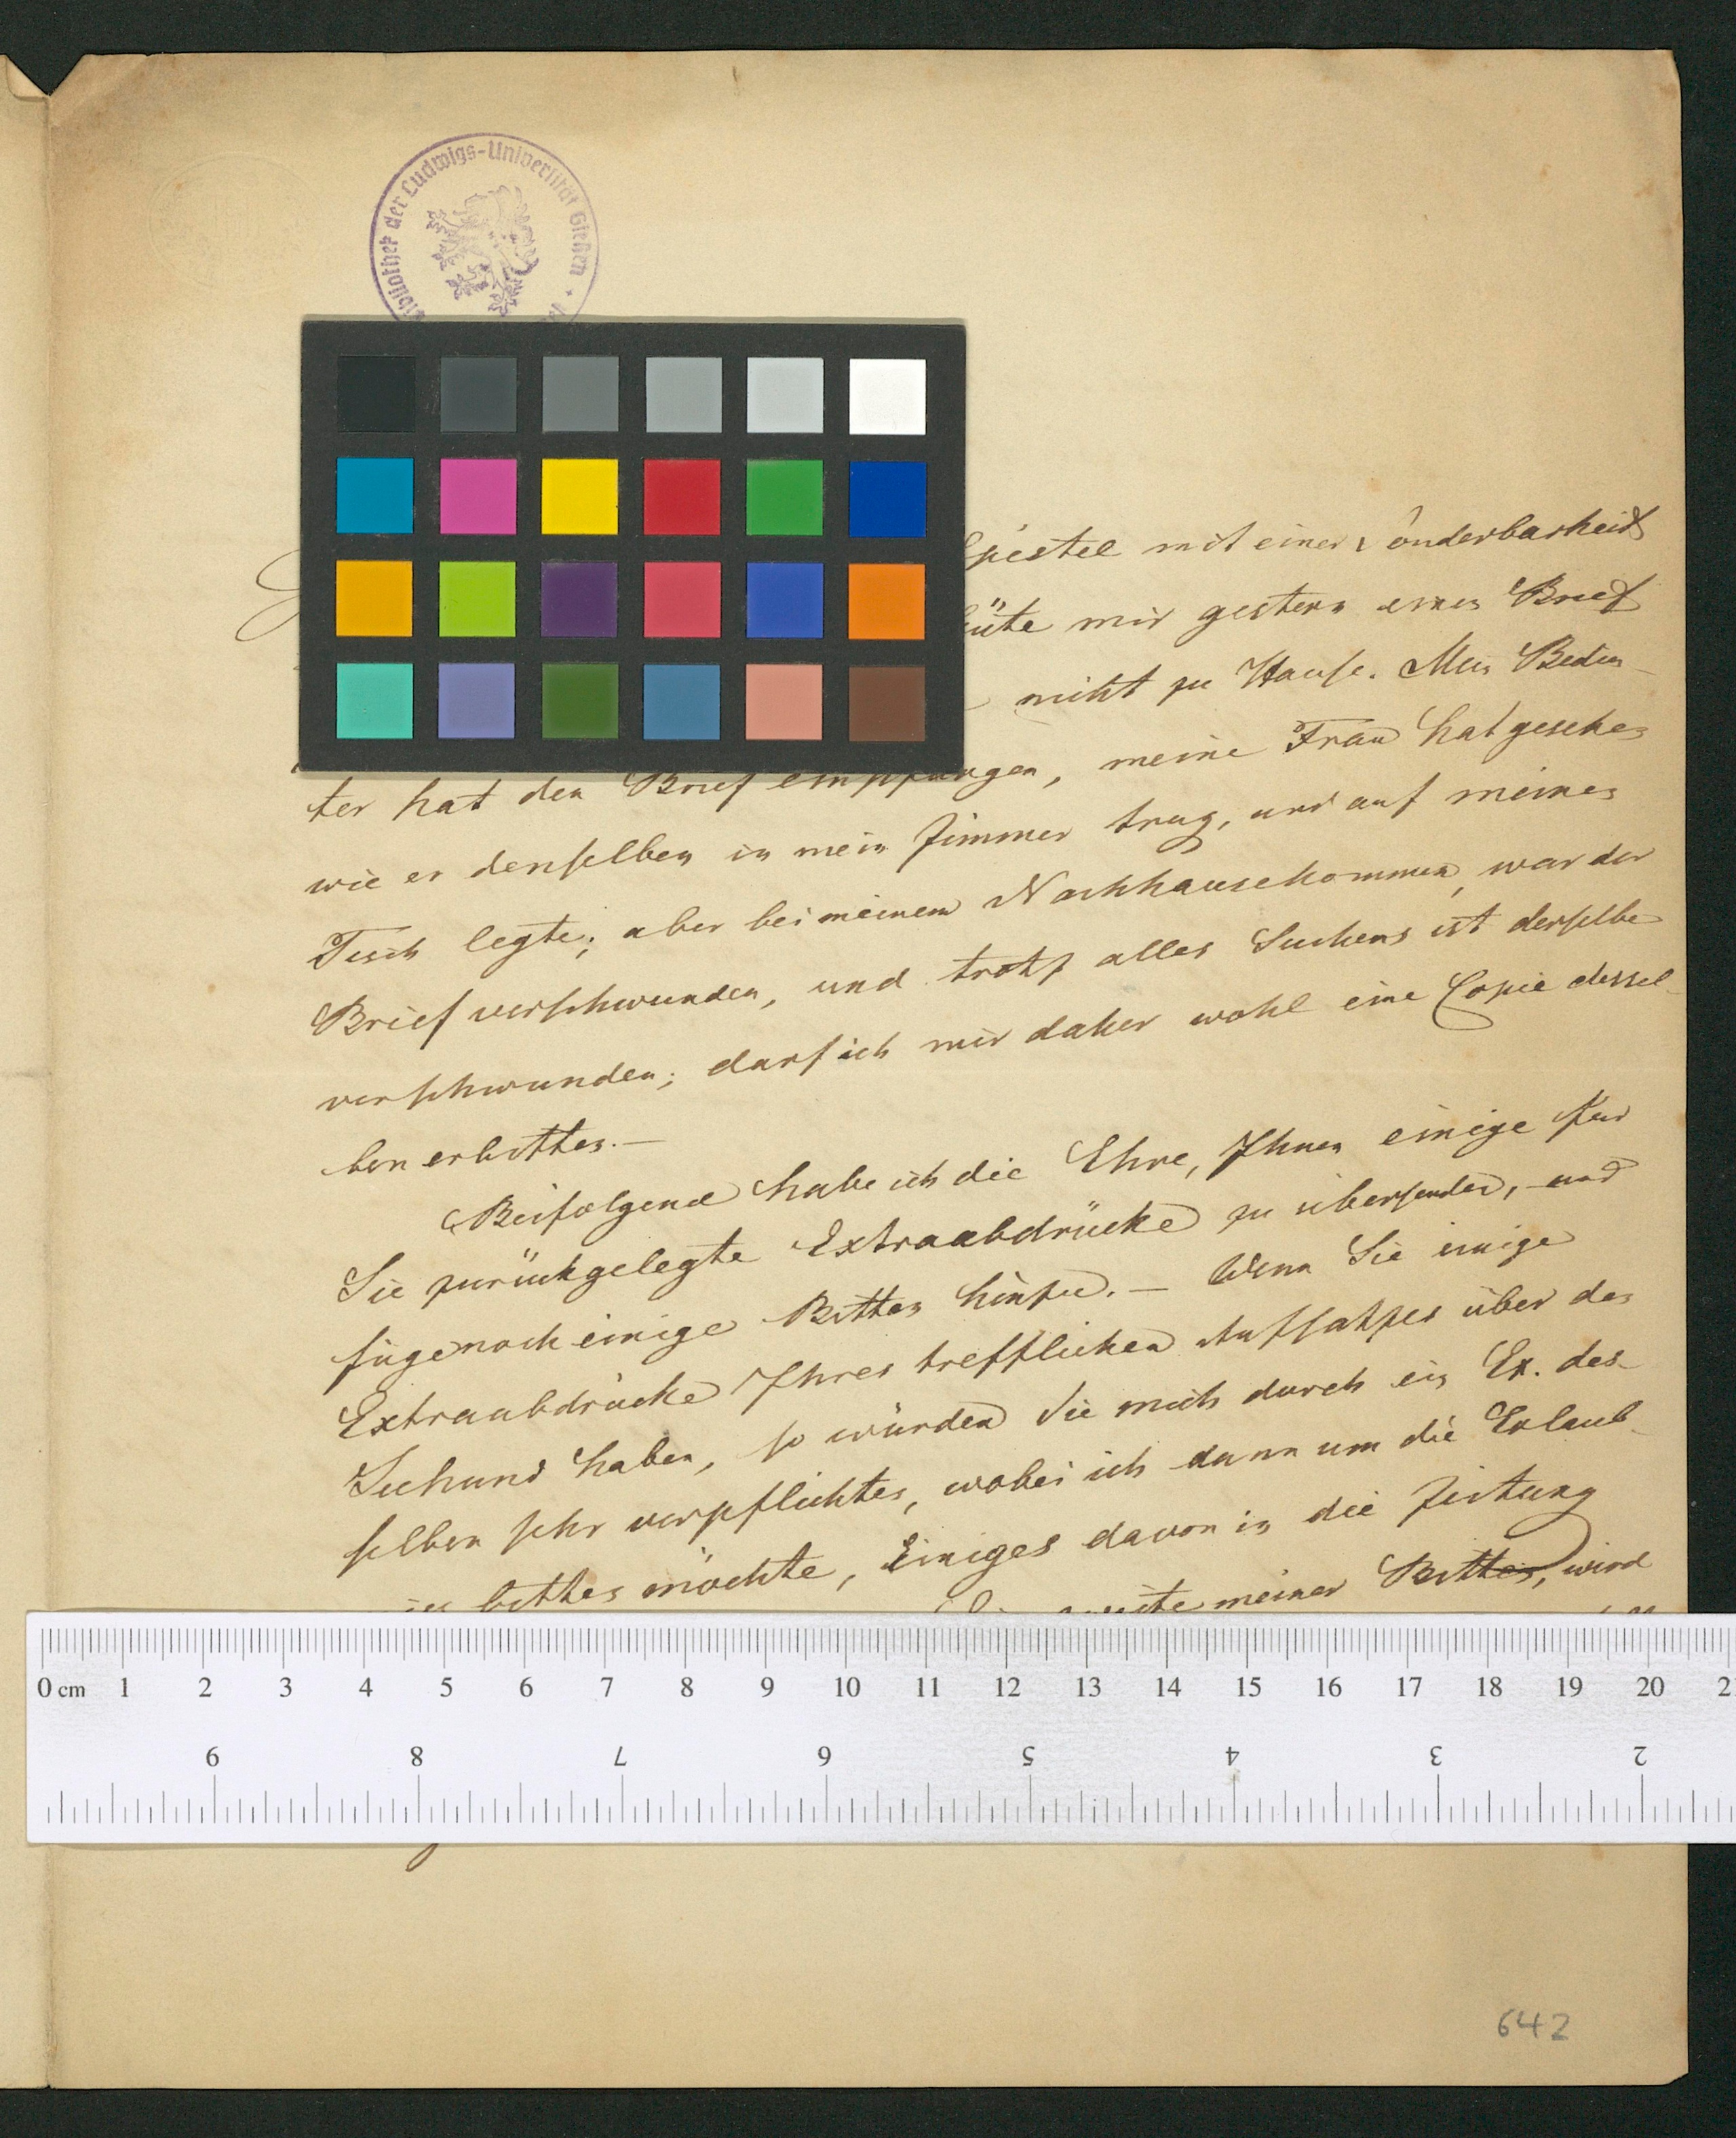 Bibliothek der Ludwigs-Universität Gießen
Epistel mit einer Sonderbarkeit
mir gestern einen Brief
nicht zu Hause. Mein Bedien-
ter hat den Brief empfangen, meine Frau hat gesehen
wie er denselben in mein Zimmer trug, und auf meinen
Tisch legte; aber bei meinem Nachhausekommen, war der
Brief verschwunden, und trotz alles Suchens ist derselbe
verschwunden; darf ich mir daher wohl eine Copie dessel-
ben erbitten. —
Beifolgend habe ich die Ehre, Ihnen einige für
Sie zurückgelegte Extraabdrücke zu übersenden, und
füge noch einige Bitten hinzu. — Wenn Sie einige
Extraabdrücke Ihres trefflichen Aufsatzes über den
Seehund haben, so würden Sie mich durch ein Ex. des-
selben sehr verpflichten, wobei ich dann um die Erlaub-
bitten möchte, Einiges davon in die Zeitung
zweite meiner Bitten, wird
0 cm 1 2 3 4 5 6 7 8 9 10 11 12 13 14 15 16 17 18 19 20 2
9 8 7 6 5 4 3 2
642